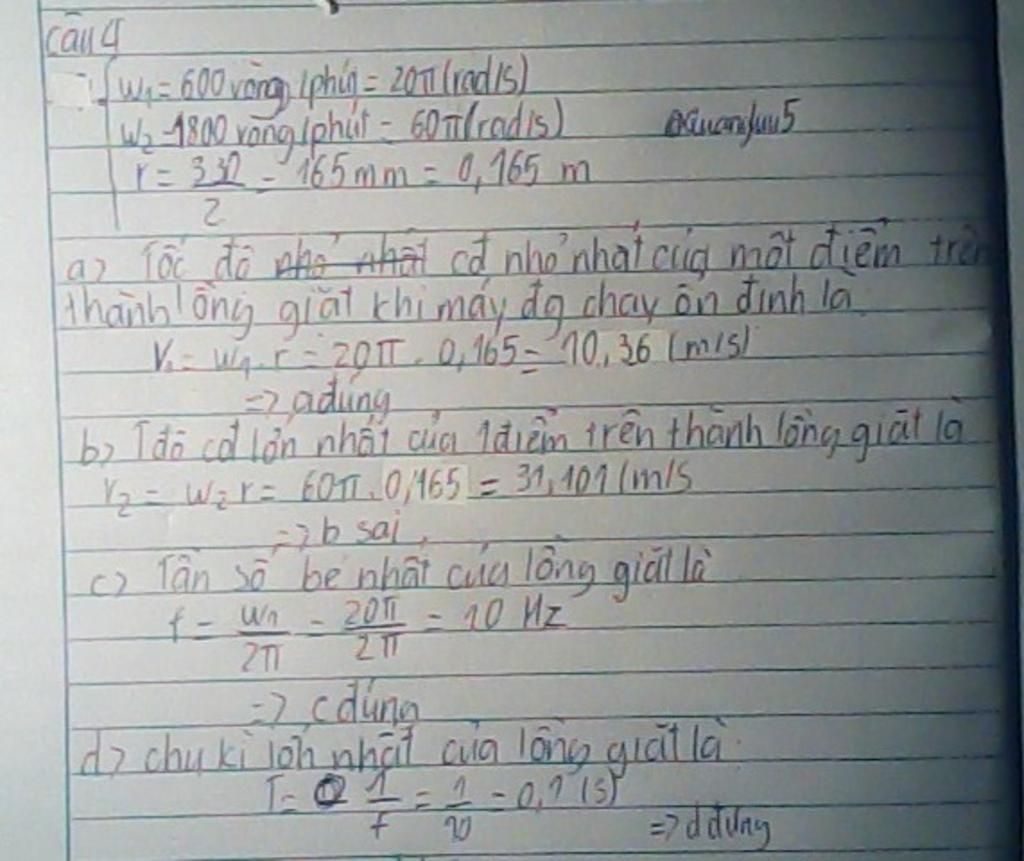 Câu 4
w₁ = 600 vòng/phút = 20π (rad/s)
w₂ = 1800 vòng/phút = 60π (rad/s)
r = 330/2 = 165mm = 0,165 m
a) Tốc độ nhỏ nhất cđ nhỏ nhất của một điểm trên
thành lồng giặt khi máy đg chạy ổn định là
V₁ = w₁.r = 20π . 0,165 = 10,36 (m/s)
=> a đúng
b) Tđộ cđ lớn nhất của 1 điểm trên thành lồng giặt là
v₂ = w₂ r = 60π.0,165 = 31,101 (m/s
=> b sai
c) Tần số bé nhất của lồng giặt là
f = w₁/2π = 20π/2π = 10 Hz
=> c đúng
d) chu kì lớn nhất của lồng giặt là:
T = 1/f = 1/10 = 0,1 (s)
=> d đúng